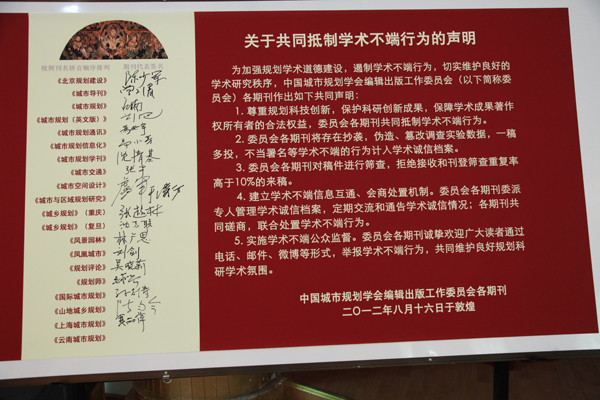 按期刊名拼音顺序排列 期刊代表签名
《北京规划建设》
《城市导刊》
《城市规划》
《城市规划（英文版）》
《城市规划通讯》
《城市规划信息化》
《城市规划学刊》
《城市交通》
《城市空间设计》
《城市与区域规划研究》
《城乡规划》（重庆）
《城乡规划》（复旦）
《风景园林》
《凤凰城市》
《规划评论》
《规划师》
《国际城市规划》
《山地城乡规划》
《上海城市规划》
《云南城市规划》
关于共同抵制学术不端行为的声明
为加强规划学术道德建设，遏制学术不端行为，切实维护良好的
学术研究秩序，中国城市规划学会编辑出版工作委员会（以下简称委
员会）各期刊作出如下共同声明：
1. 尊重规划科技创新，保护科研创新成果，保障学术成果著作
权所有者的合法权益，委员会各期刊共同抵制学术不端行为。
2. 委员会各期刊将存在抄袭，伪造、篡改调查实验数据，一稿
多投，不当署名等学术不端的行为计入学术诚信档案。
3. 委员会各期刊对稿件进行筛查，拒绝接收和刊登筛查重复率
高于10%的来稿。
4. 建立学术不端信息互通、会商处置机制。委员会各期刊委派
专人管理学术诚信档案，定期交流和通告学术诚信情况；各期刊共
同磋商，联合处置学术不端行为。
5. 实施学术不端公众监督。委员会各期刊诚挚欢迎广大读者通过
电话、邮件、微博等形式，举报学术不端行为，共同维护良好规划科
研学术氛围。
中国城市规划学会编辑出版工作委员会各期刊
二〇一二年八月十六日于敦煌